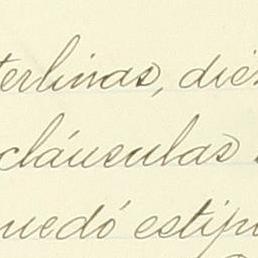 terlinas, diez
cláusulas
quedó estip